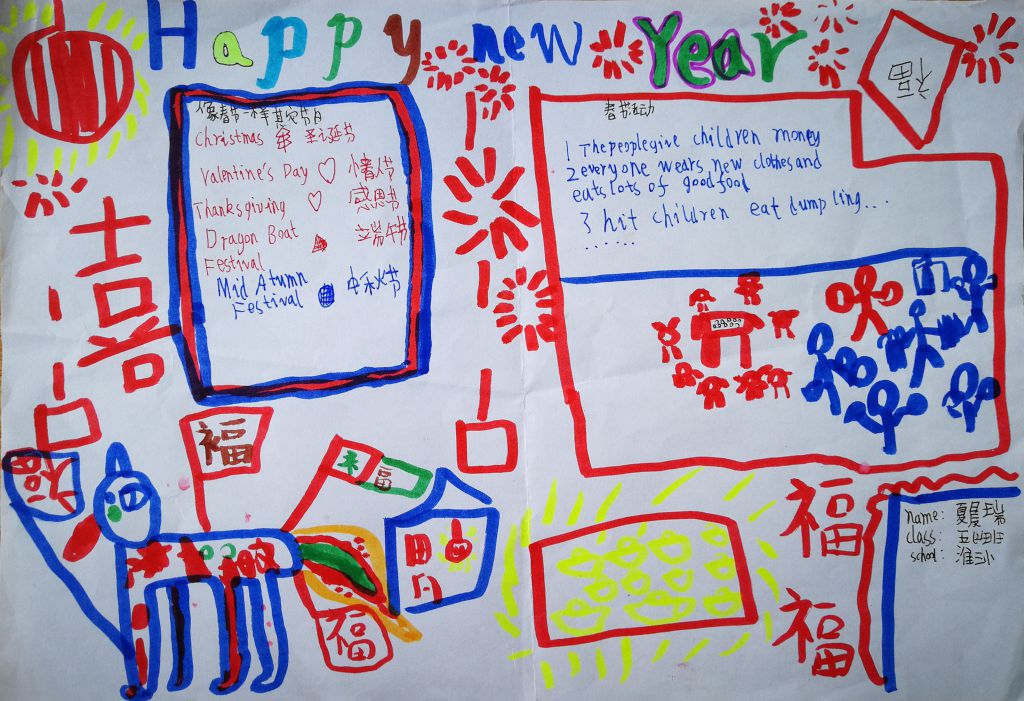 Happy new Year
像春节一样其它节日
Christmas 圣诞节
Valentine's Day 情人节
Thanksgiving 感恩节
Dragon Boat 立端午节
Festival
Mid Atumn 中秋节
Festival
喜
春节活动
1 The people give children money
2 everyone wears new clothes and
eats lots of good food
3 hit children eat dumpling...
......
福
福
来福
福
福
福
name: 夏晨瑞
class: 五四班
school: 淮小